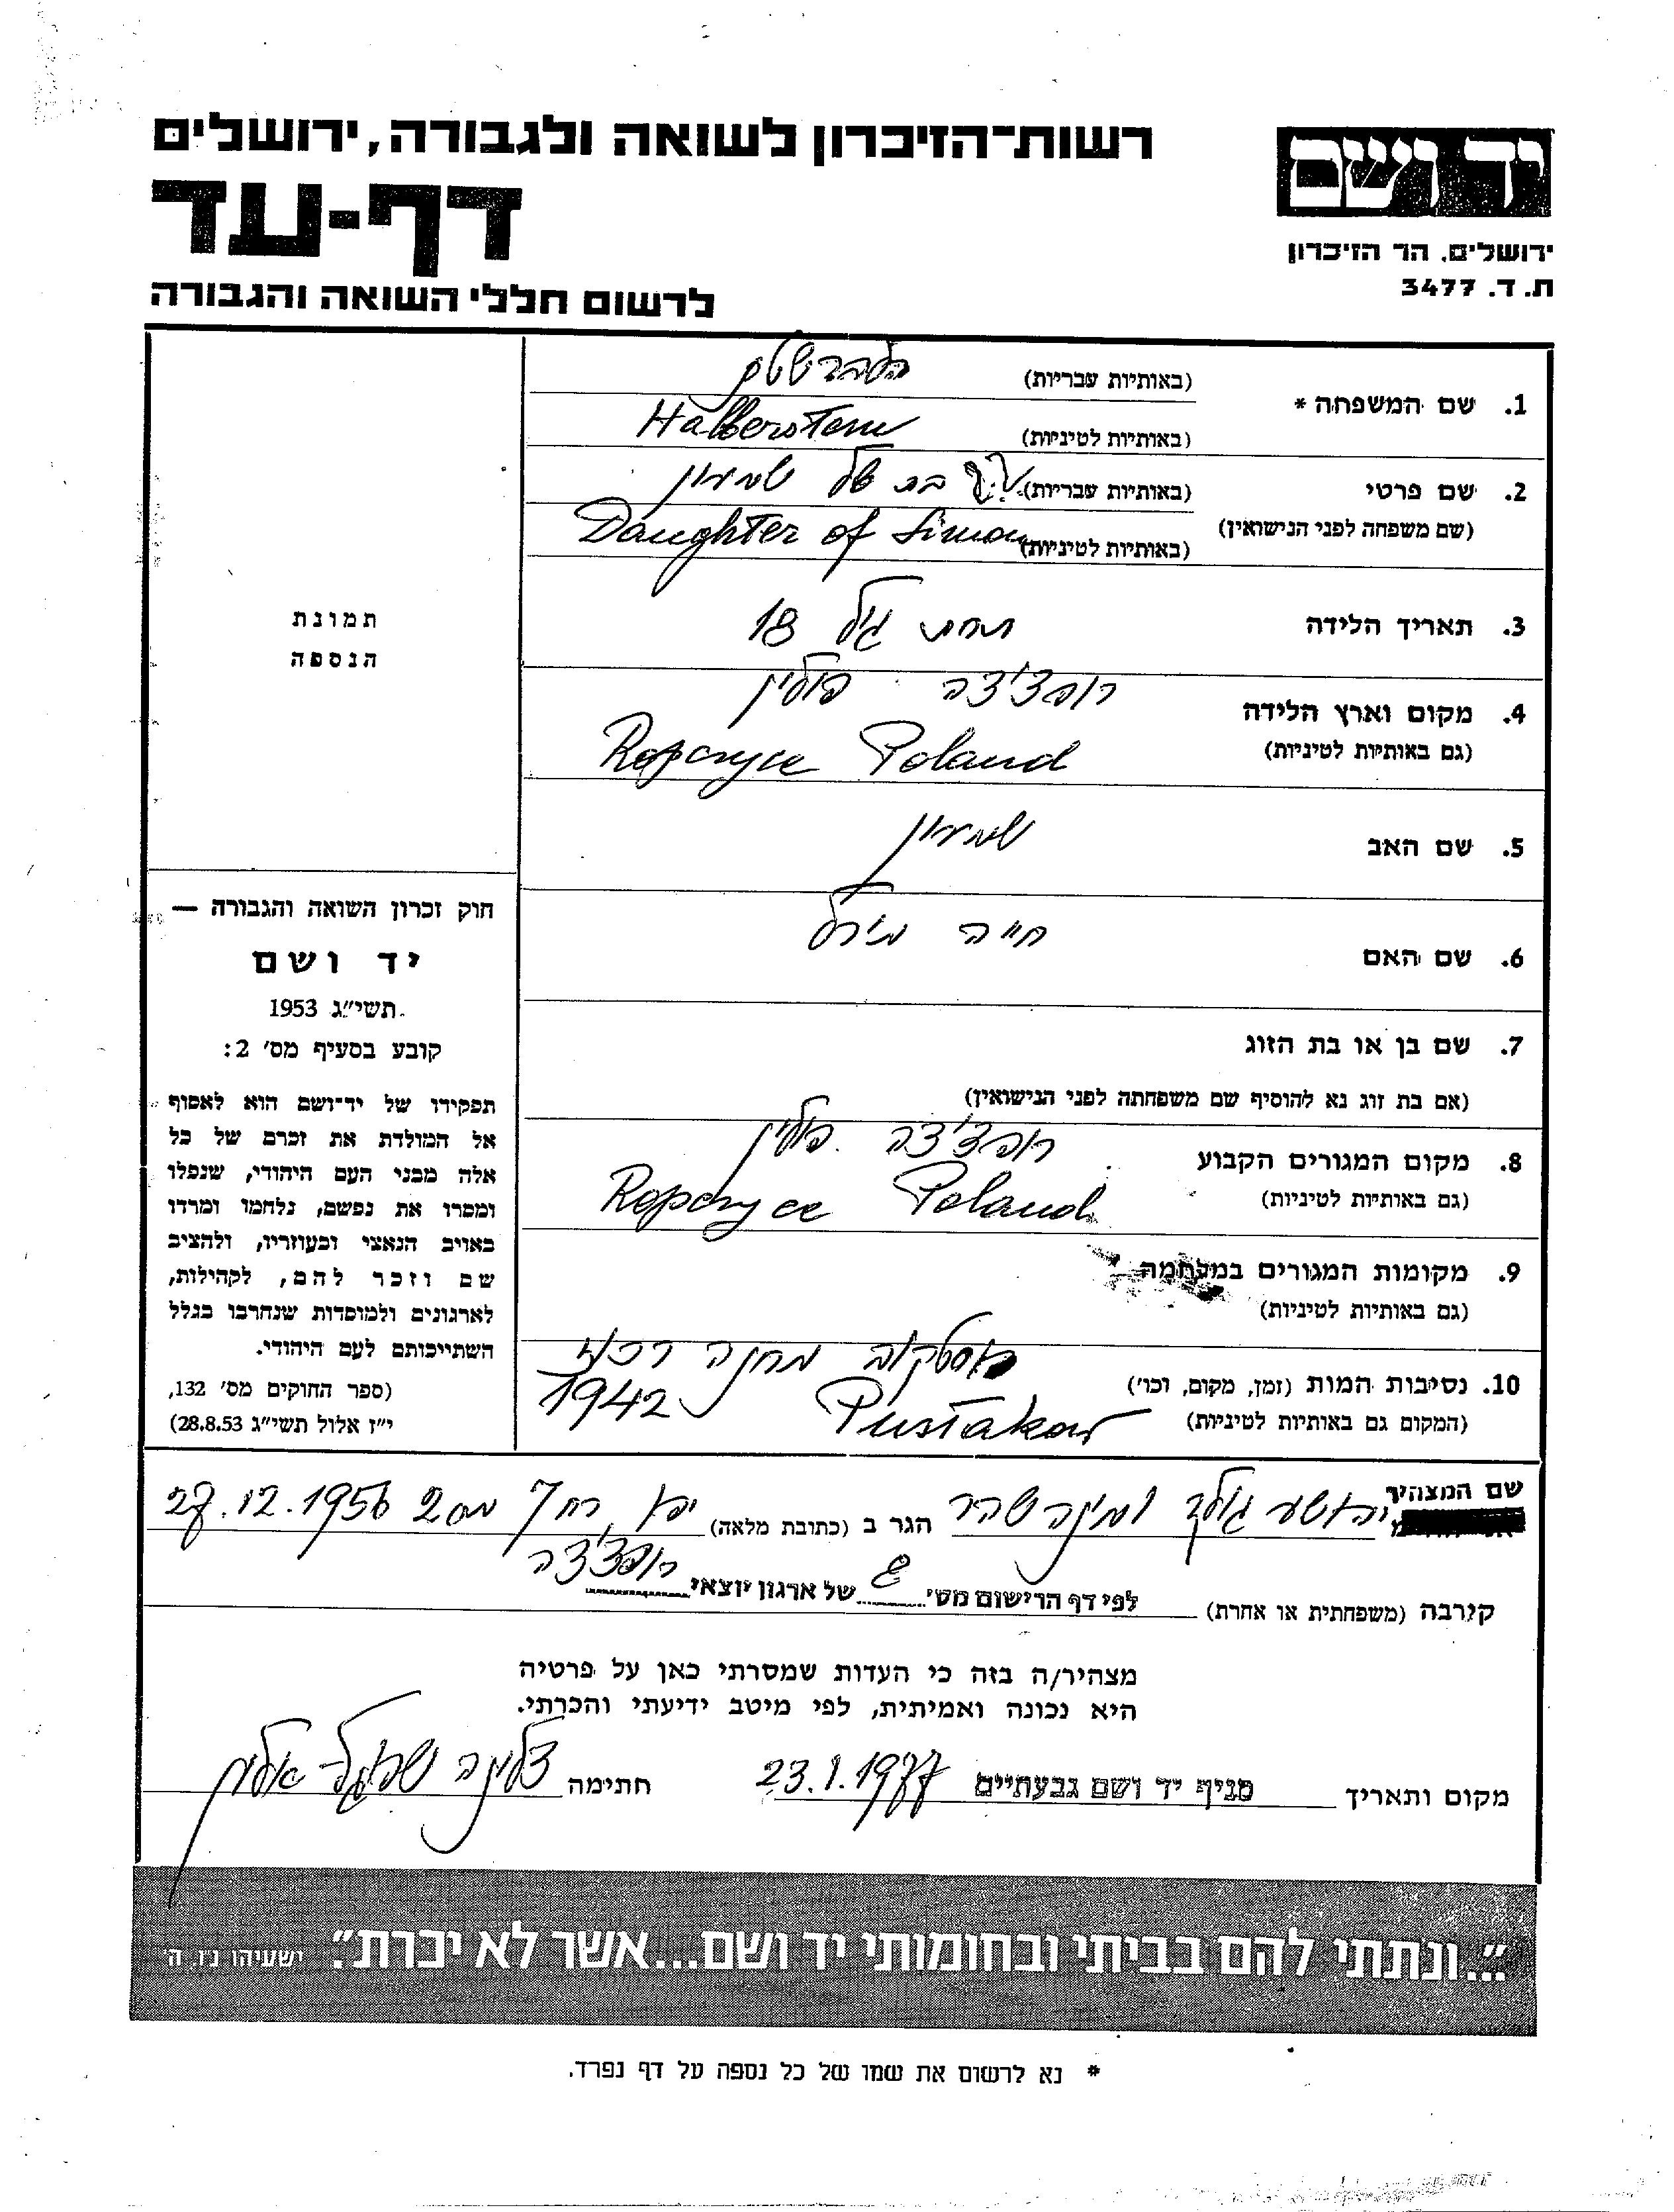 רשות־הזיכרון לשואה ולגבורה, ירושלים
יד ושם
דף-עד
ירושלים, הר הזיכרון
ת.ד. 3477
לרשום חללי השואה והגבורה
1. שם המשפחה *
(באותיות עבריות) הלברשטם
(באותיות לטיניות) Halberstam
2. שם פרטי
(באותיות עבריות) בת של שמעון
(שם משפחה לפני הנישואין)
(באותיות לטיניות) Daughter of Simon
3. תאריך הלידה תחת גיל 18
4. מקום וארץ הלידה רופצ'צה פולין
(גם באותיות לטיניות) Ropczyce Poland
5. שם האב שמעון
6. שם האם חיה מירל
7. שם בן או בת הזוג
(אם בת זוג נא להוסיף שם משפחתה לפני הנישואין)
8. מקום המגורים הקבוע רופצ'צה פולין
(גם באותיות לטיניות) Ropczyce Poland
9. מקומות המגורים במלחמה
(גם באותיות לטיניות)
10. נסיבות המות (זמן, מקום, וכו') פוסטקוב מחנה
(המקום גם באותיות לטיניות) Pustakow 1942
תמונת
הנספה
חוק זכרון השואה והגבורה —
יד ושם
תשי"ג 1953
קובע בסעיף מס' 2:
תפקידו של יד־ושם הוא לאסוף
אל המולדת את זכרם של כל
אלה מבני העם היהודי, שנפלו
ומסרו את נפשם, נלחמו ומרדו
באויב הנאצי ובעוזריו, ולהציב
שם וזכר להם, לקהילות,
לארגונים ולמוסדות שנחרבו בגלל
השתייכותם לעם היהודי.
(ספר החוקים מס' 132,
י"ז אלול תשי"ג 28.8.53)
שם המצהיר יהושע הגר ב (כתובת מלאה) יפו 27.12.1956
קירבה (משפחתית או אחרת) לפי דף הרישום מס' 8 של ארגון יוצאי רופצ'צה
מצהיר/ה בזה כי העדות שמסרתי כאן על פרטיה
היא נכונה ואמיתית, לפי מיטב ידיעתי והכרתי.
מקום ותאריך סניף יד ושם גבעתיים 23.1.1977 חתימה
"...ונתתי להם בביתי ובחומותי יד ושם...אשר לא יכרת". ישעיהו נ"ו, ה'
* נא לרשום את שמו של כל נספה על דף נפרד.